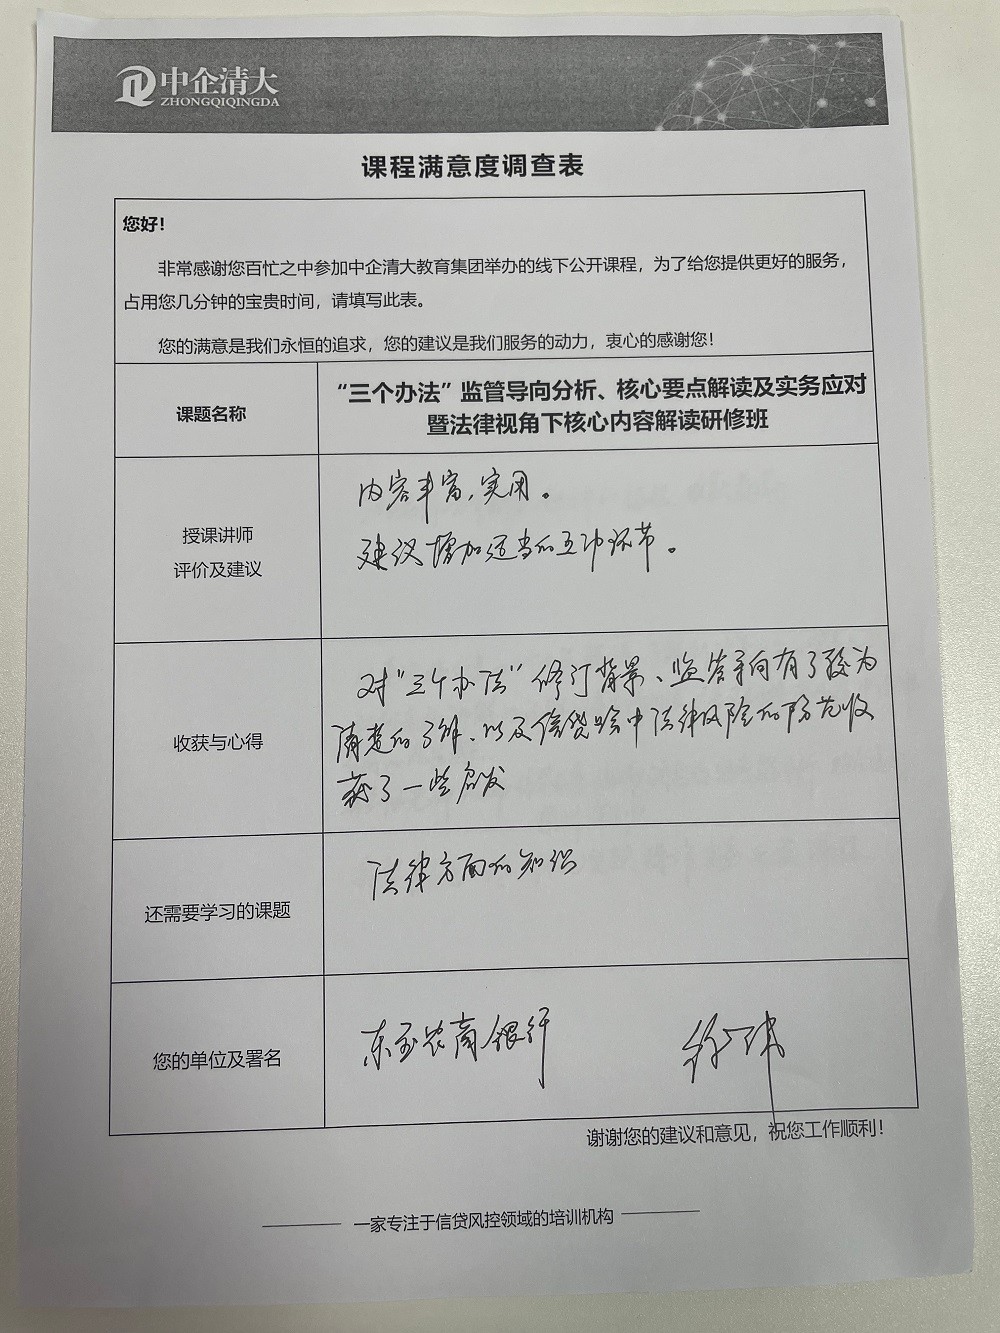 中企清大
ZHONGQIQINGDA
课程满意度调查表
您好！
非常感谢您百忙之中参加中企清大教育集团举办的线下公开课程，为了给您提供更好的服务，
占用您几分钟的宝贵时间，请填写此表。
您的满意是我们永恒的追求，您的建议是我们服务的动力，衷心的感谢您！
课题名称
“三个办法”监管导向分析、核心要点解读及实务应对
暨法律视角下核心内容解读研修班
授课讲师
评价及建议
内容丰富，实用。
建议增加适当的互动环节。
收获与心得
对“三个办法”修订背景、监管导向有了较为
清楚的了解、以及信贷中法律风险的防范收
获了一些启发
还需要学习的课题
法律方面的知识
您的单位及署名
东至农商银行
徐玮
谢谢您的建议和意见，祝您工作顺利！
一家专注于信贷风控领域的培训机构